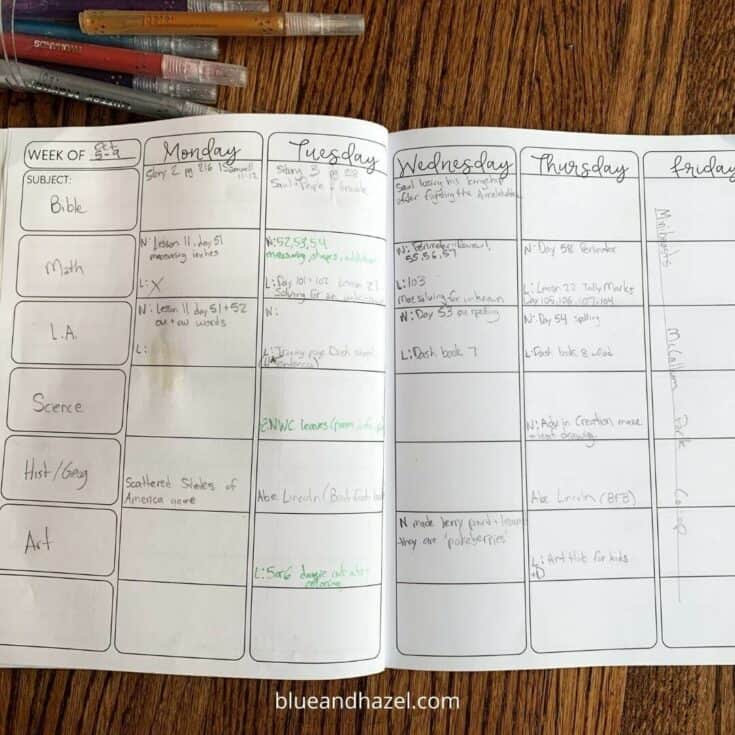 WEEK OF Oct 5-9
Monday
Tuesday
Wednesday
Thursday
Friday
SUBJECT:
Bible
Story 2 pg 216 1 Samuel
11-12
Story 3 pg 218
Saul + People
Saul losing his kingship
after fighting the
Math
N: Lesson 11, day 51
measuring inches
L: X
N: 52, 53, 54
measuring, shapes,
L: Day 101 + 102 Lesson 21
Solving for an
N: Perimeter
55, 56, 57
L: 103
solving for unknown
N: Day 58 Perimeter
L: Lesson 22 Tally Marks
Day 105, 106, 107, 104
L.A.
N: Lesson 11 day 51 + 52
ou + ow words
L:
N:
L: page Dash
N: Day 53 spelling
L: Dash book 7
N: Day 54 spelling
L: Dash book 8
Science
NWC leaves
N: Adv in Creation make
leaf drawing
Hist/Geog
Scattered States of
America game
Abe Lincoln
Abe Lincoln (BFB)
Art
L: 5 or 6
coloring
N made berry paint + learn
they are 'pokeberries'
L: Art Hub for kids
McCallum Park Co-op
blueandhazel.com